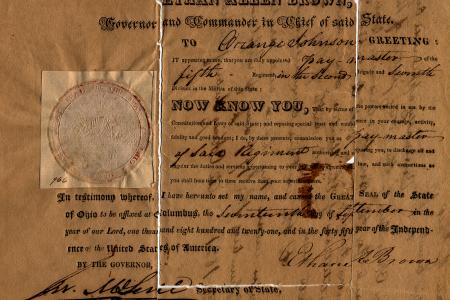 ETHAN ALLEN BROWN,
Governor and Commander in Chief of said State.
TO Orange Johnson GREETING:
IT appearing to me, that you are duly appointed Pay-master
fifth Regiment in the Second Brigade and Seventh
Division in the Militia of this State:
NOW KNOW YOU, That by virtue of the powers vested in me by the
Constitution and Laws of said state; and reposing special trust and in your courage, activity,
fidelity and good conduct; I do, by these presents, commission you as Pay-master
of Said Regiment
regulate the duties and services appertaining to your requiring you, to discharge all and
you shall from time to time receive from your superior
In testimony whereof, I have hereunto set my name, and caused the GREAT SEAL of the State
of Ohio to be affixed at Columbus, the Seventeenth day of September in the
year of our Lord, one thousand eight hundred and twenty-one, and in the forty sixth year of the Independ-
ence of the United States of America.
BY THE GOVERNOR, Ethan A Brown
Secretary of State.